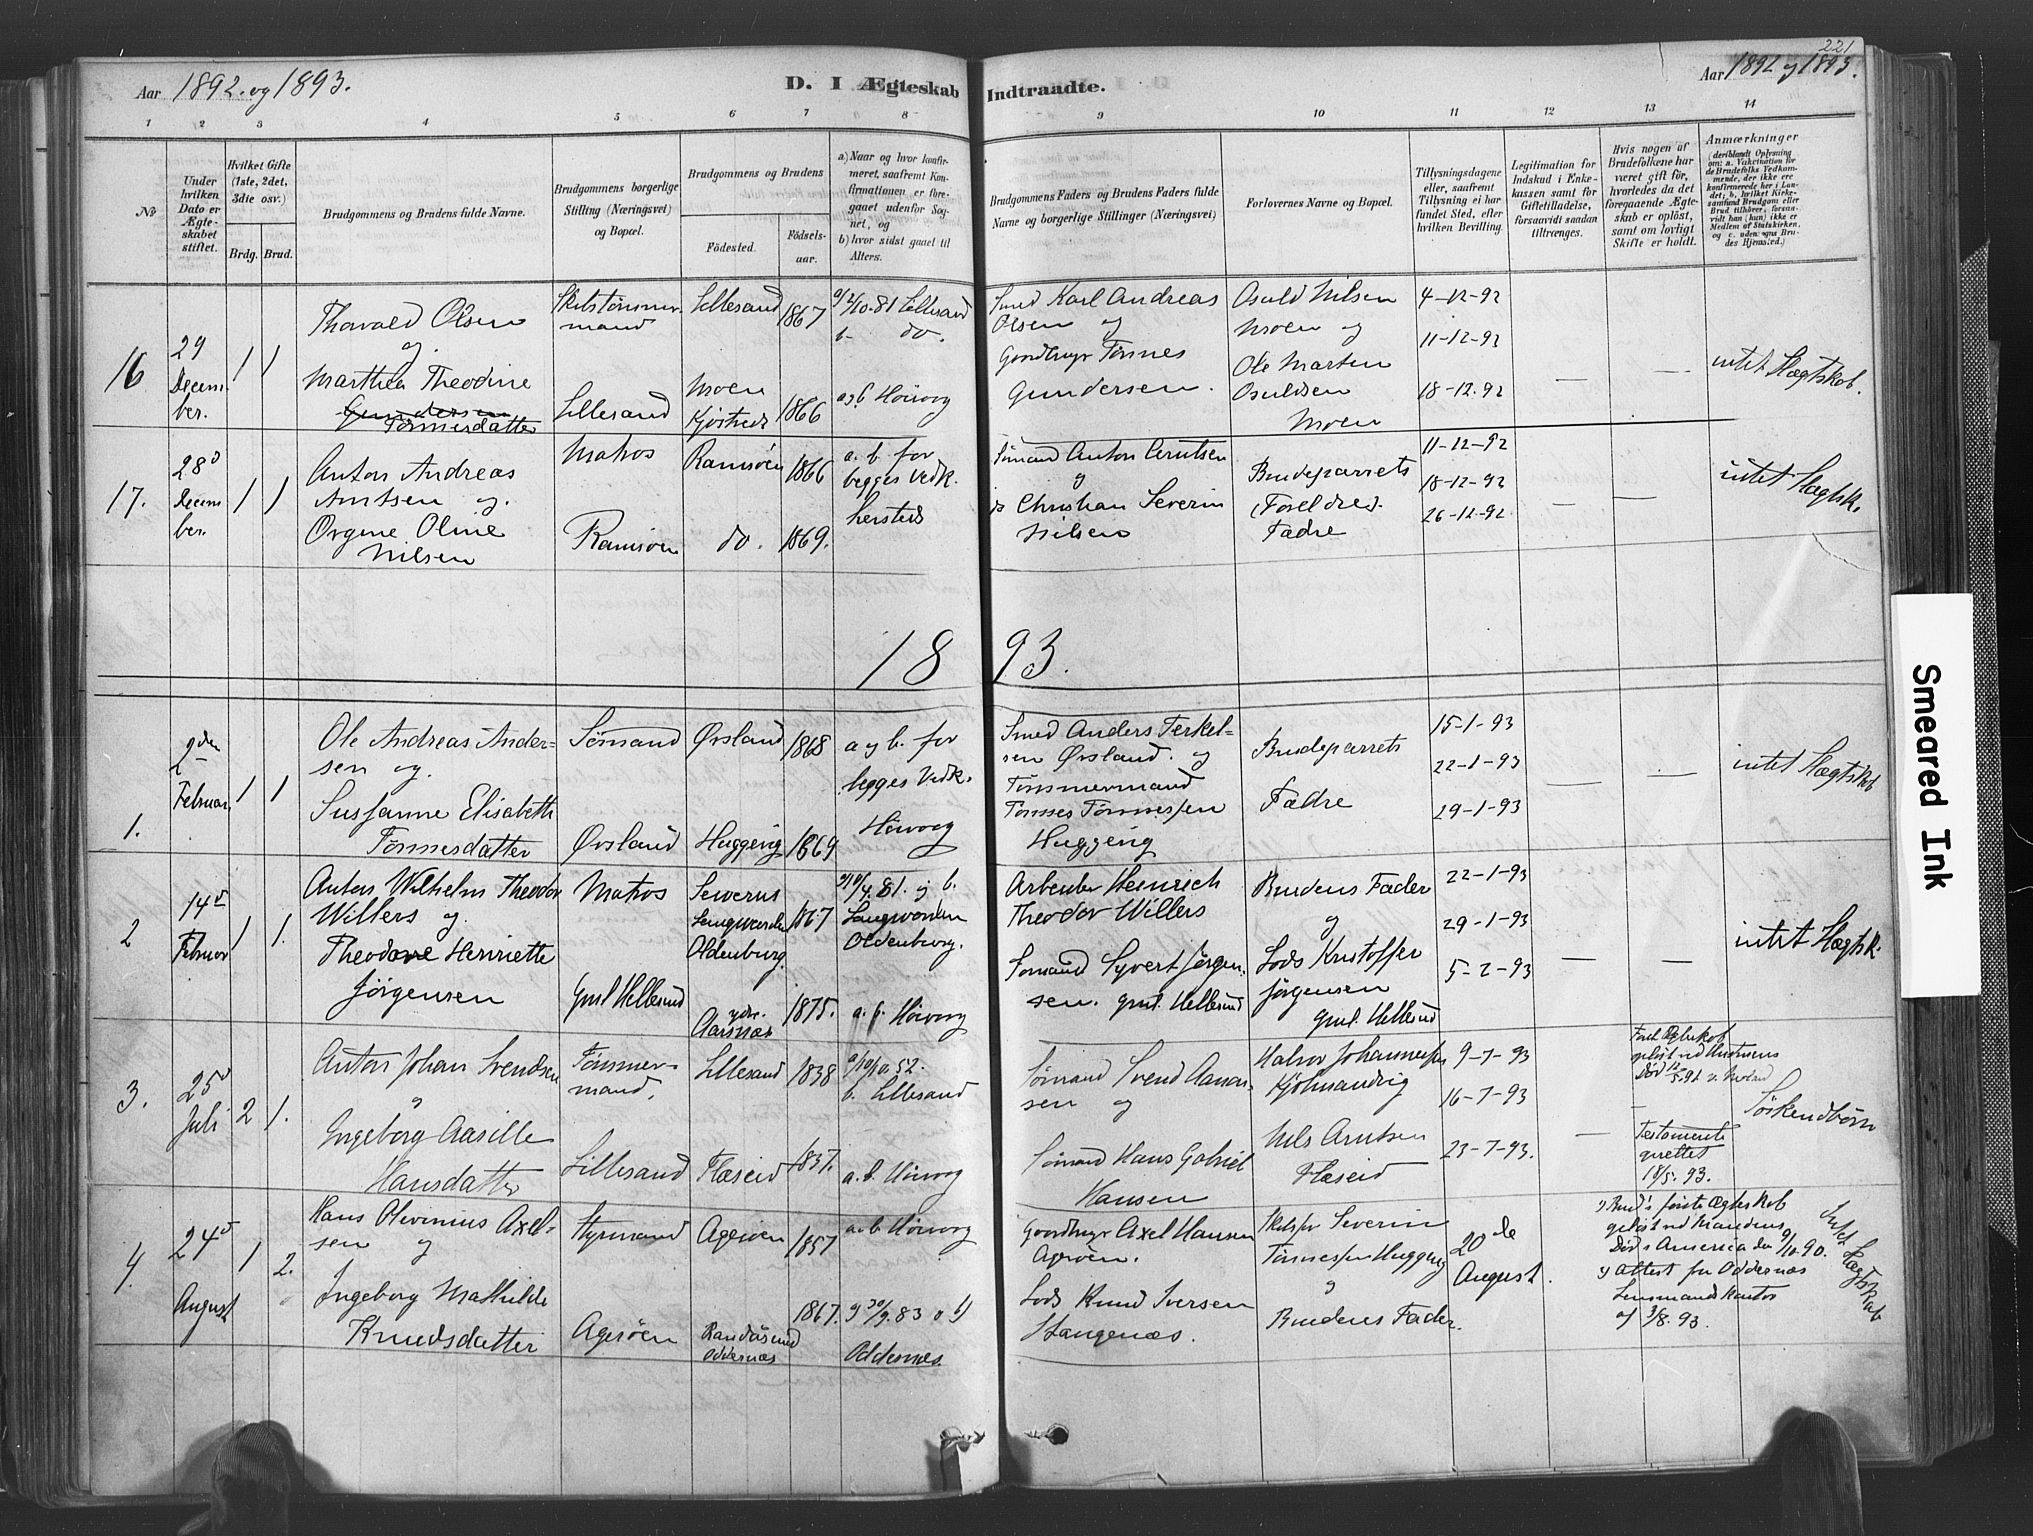 221
Aar 1892. og 1893.
D. I Ægteskab Indtraadte.
Aar 1892 og 1893.
1 2 3 4 5 6 7 8 9 10 11 12 13 14
No
Under hvilken Dato er Ægteskabet stiftet.
Hvilket Gifte (1ste, 2det, 3die osv.)
Brdg. Brud.
Brudgommens og Brudens fulde Navne.
Brudgommens borgerlige Stilling (Næringsvei) og Bopæl.
Brudgommens og Brudens
Fødested.
Fødselsaar.
a) Naar og hvor konfirmeret, saafremt Konfirmationen er foregaaet udenfor Sognet, og
b) hvor sidst gaaet til Alters.
Brudgommens Faders og Brudens Faders fulde Navne og borgerlige Stillinger (Næringsvei)
Forlovernes Navne og Bopæl.
Tillysningsdagene eller, saafremt Tillysning ei har fundet Sted, efter hvilken Bevilling.
Legitimation for Indskud i Enkekassen samt for Giftetilladelse, forsaavidt saadan tiltrænges.
Hvis nogen af Brudefolkene har været gift før, hvorledes da det foregaaende Ægteskab er opløst, samt om lovligt Skifte er holdt.
Anmærkninger
(deriblandt Oplysning om: a. Vakcination for de Brudefolks Vedkommende, der ikke ere konfirmerede her i Landet; b. hvilket Kirkesamfund Brudgom eller Brud tilhører, forsaavidt han (hun) ikke er Medlem af Statskirken, og c. uden egns Brudes Hjemsted.)
16
29 December.
1 1
Thorvald Olsen
og
Marthea Theodine
Gundersen
Tønnesdatter
Skibstømmermand
Lillesand
Lillesand 1867
Moen 1866
a) 2/10-81 Lillesand
b- do.
a og b Höivog
Smed Karl Andreas
Olsen og
Gaardbrugr Tønnes
Gundersen.
Osuld Nilsen
Moen og
Ole Marten
Osuldsen
Moen
4-12-92
11-12-92
18-12-92
—
—
intet Slægtskab.
17.
28d December.
1 1
Anton Andreas
Arntsen og.
Ørgine Oline
Nilsen
Matros
Ramsøen
Ramsøen 1866
do. 1869.
a. b. for
begges Vedk.
hersteds
Sømand Anton Arntsen
og
Christian Severin
Nilsen
Brudeparrets
(Foreldre).
Fædre
11-12-92
18-12-92
26-12-92
—
—
intet Slægtsk.
1893.
1.
2den Februar.
1 1
Ole Andreas Andersen
og.
Susanne Elisabeth
Tønnesdatter
Sømand
Øvsland
Øvsland 1868
Huggevig 1869
a og b. for
begges Vedk.
Höivog
Smed Anders Terkelsen
Øvsland. og
Tømmermand
Tønnes Tønnessen
Huggevig
Brudeparrets
Fædre
15-1-93
22-1-93
29-1-93
—
—
intet Slægtskab
2
14d Februar
1 1.
Anton Wilhelm Theodor
Willers og.
Theodore Henriette
Jørgensen
Matros
Gml Hellesund
Langwarden
Oldenburg. 1867
ydre.
Aarsnæs 1875.
81. og b.
Langwarden
Oldenburg.
a. b. Höivog
Arbeider Heinrich
Theodor Willers
Sømand Syvert Jørgensen.
gml. Hellesund
Brudens Fader
og
Lods Kristoffer
Jørgensen
Gml. Hellesund
22-1-93
29-1-93
5-2-93
—
—
intet Slægtsk.
3.
25d Juli
2 1.
Anton Johan Svendsen
og
Ingeborg Aasille
Hansdatter
Tømmermand,
Lillesand
Lillesand 1838
Flæseid 1837.
52.
b. Lillesand
a. b. Höivog
Sømand Svend Aanonsen
og
Sømand Hans Gabriel
Hansen
Halvor Johannessen
Kjølmandvig
Nils Arntsen
Flæseid
9-7-93
16-7-93
23-7-93.
—
Forh. Ægteskab
opløst ved Hustruens
Död
Testamente
oprettet
18/5. 93.
Söskendbörn
4.
24d August
1 2.
Hans Olevinius Axelsen
og
Ingeborg Mathilde
Knudsdatter
Styrmand
Agerøen
Agerøen 1857
Randøsund
Oddernæs 1867.
a. b. Höivog
30/9. 83 o b)
Oddernes.
Gaardbrugr Axel Hansen
Agerøen.
Lods Knud Iversen
Stangenæs.
Skibsfør Severin
Tønnessen Huggevig
og
Brudens Fader.
20de
August.
1) Brud's første Ægteskab
opløst ved Mandens
Död i America den 9/10. 90.
2) Attest fra Oddernæs
Lensmandskontor
af 3/8. 93.
Intet Slægtskab
Smeared Ink